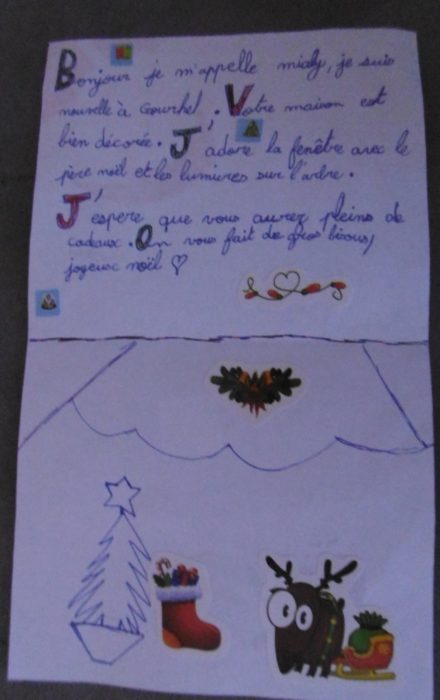 Bonjour je m'appelle mialy, je suis
nouvelle à Gourhel. Votre maison est
bien décorée. J'adore la fenêtre avec le
père noël et les lumieres sur l'arbre.
J'éspere que vous aurez pleins de
cadeaux. On vous fait de gros bisous,
joyeux noël ♡